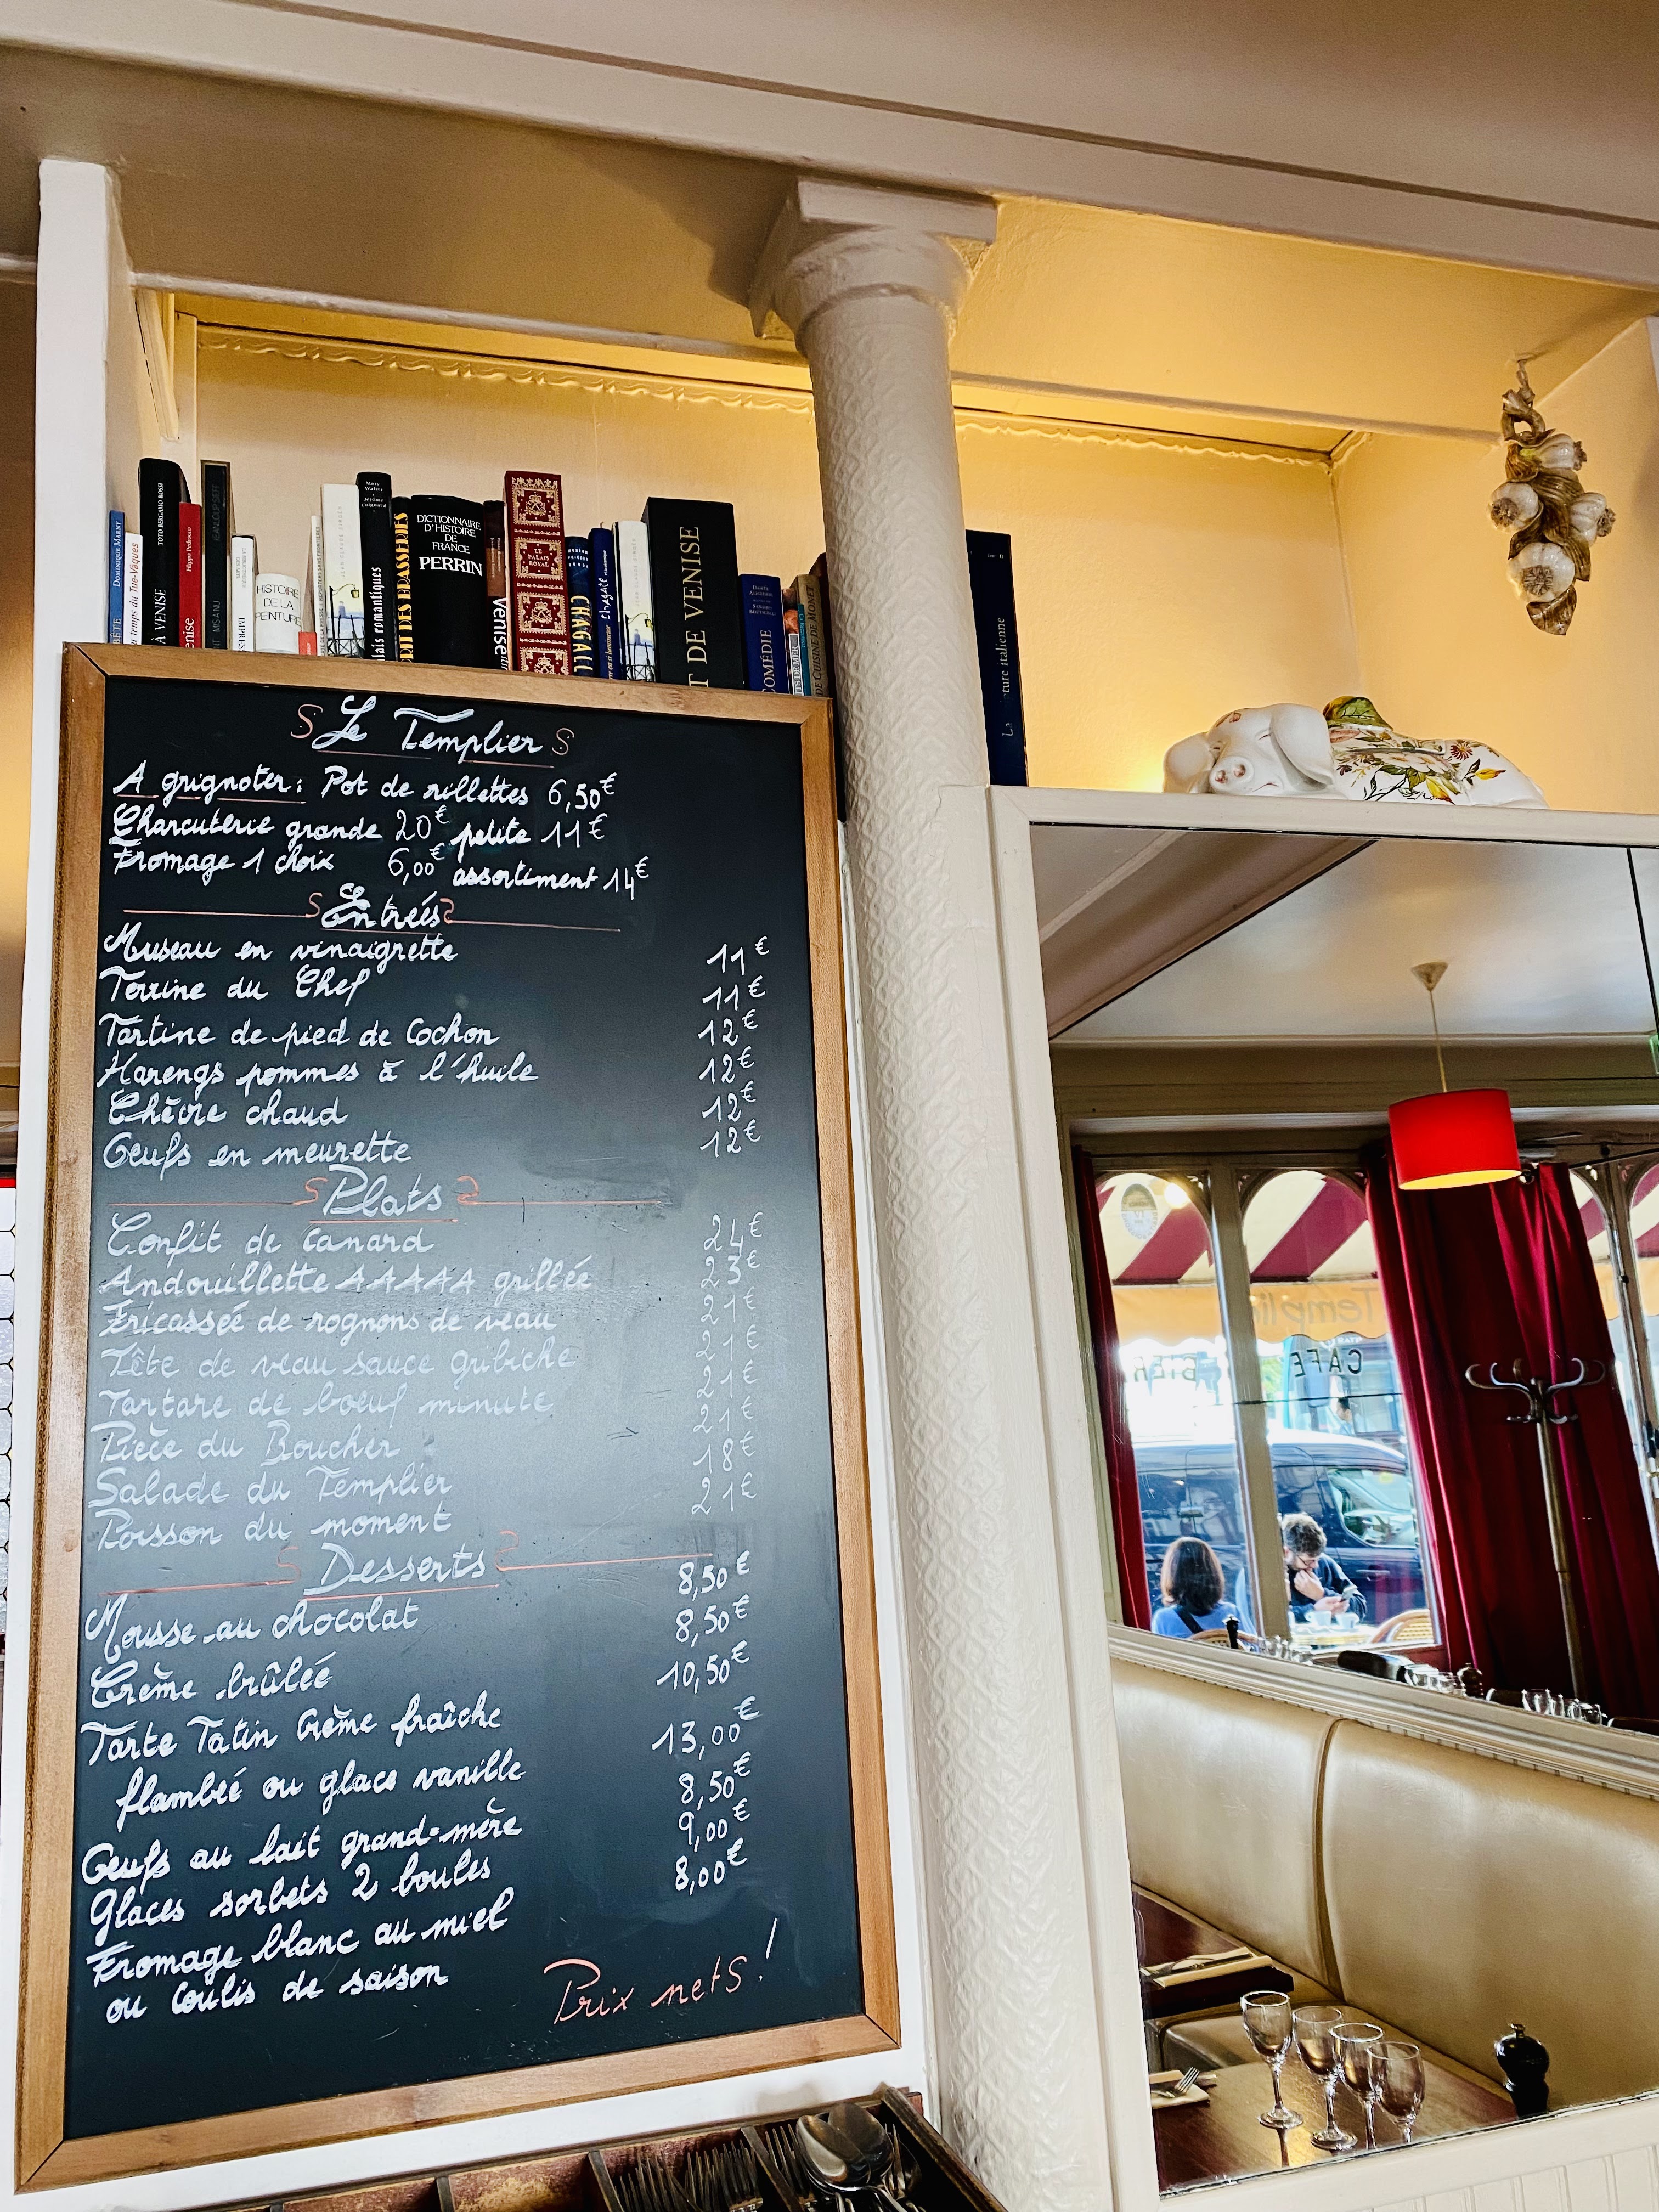 DOMINIQUE MARNY
BÊTE
au temps du Tue-Vaques
TOTO BERGAMO ROSSI
À VENISE
Filippo Pedrocco
enise
JEANLOUP SIEFF
MIS À NU
IMPRES
HISTOIRE
DE LA
PEINTURE
Marc
Walter
Jérôme
Coignard
lais romantiques
ORT DES BRASSERIES
DICTIONNAIRE
D'HISTOIRE
DE
FRANCE
PERRIN
venise
LE
PALAIS
ROYAL
CHAGALL
chagall
T DE VENISE
DANTE
ALIGHIERI
SANDRO
BOTTICELLI
COMÉDIE
DE CUISINE DE MONET
ture italienne
Le Templier
A grignoter: Pot de rillettes 6,50€
Charcuterie grande 20€ petite 11€
Fromage 1 choix 6,00€ assortiment 14€
Les
Entrées
Museau en vinaigrette 11€
Terrine du Chef 11€
Tartine de pied de Cochon 12€
Harengs pommes à l'huile 12€
Chèvre chaud 12€
Oeufs en meurette 12€
Plats
Confit de canard 24€
Andouillette AAAAA grillée 23€
Fricassée de rognons de veau 21€
Tête de veau sauce gribiche 21€
Tartare de boeuf minute 21€
Pièce du Boucher 21€
Salade du Templier 18€
Poisson du moment 21€
Desserts
Mousse au chocolat 8,50€
Crème brûlée 8,50€
Tarte Tatin Crème fraîche 10,50€
flambée ou glace vanille 13,00€
Oeufs au lait grand-mère 8,50€
Glaces sorbets 2 boules 9,00€
Fromage blanc au miel 8,00€
ou Coulis de saison
Prix nets!
Templi
CAFE
BIER